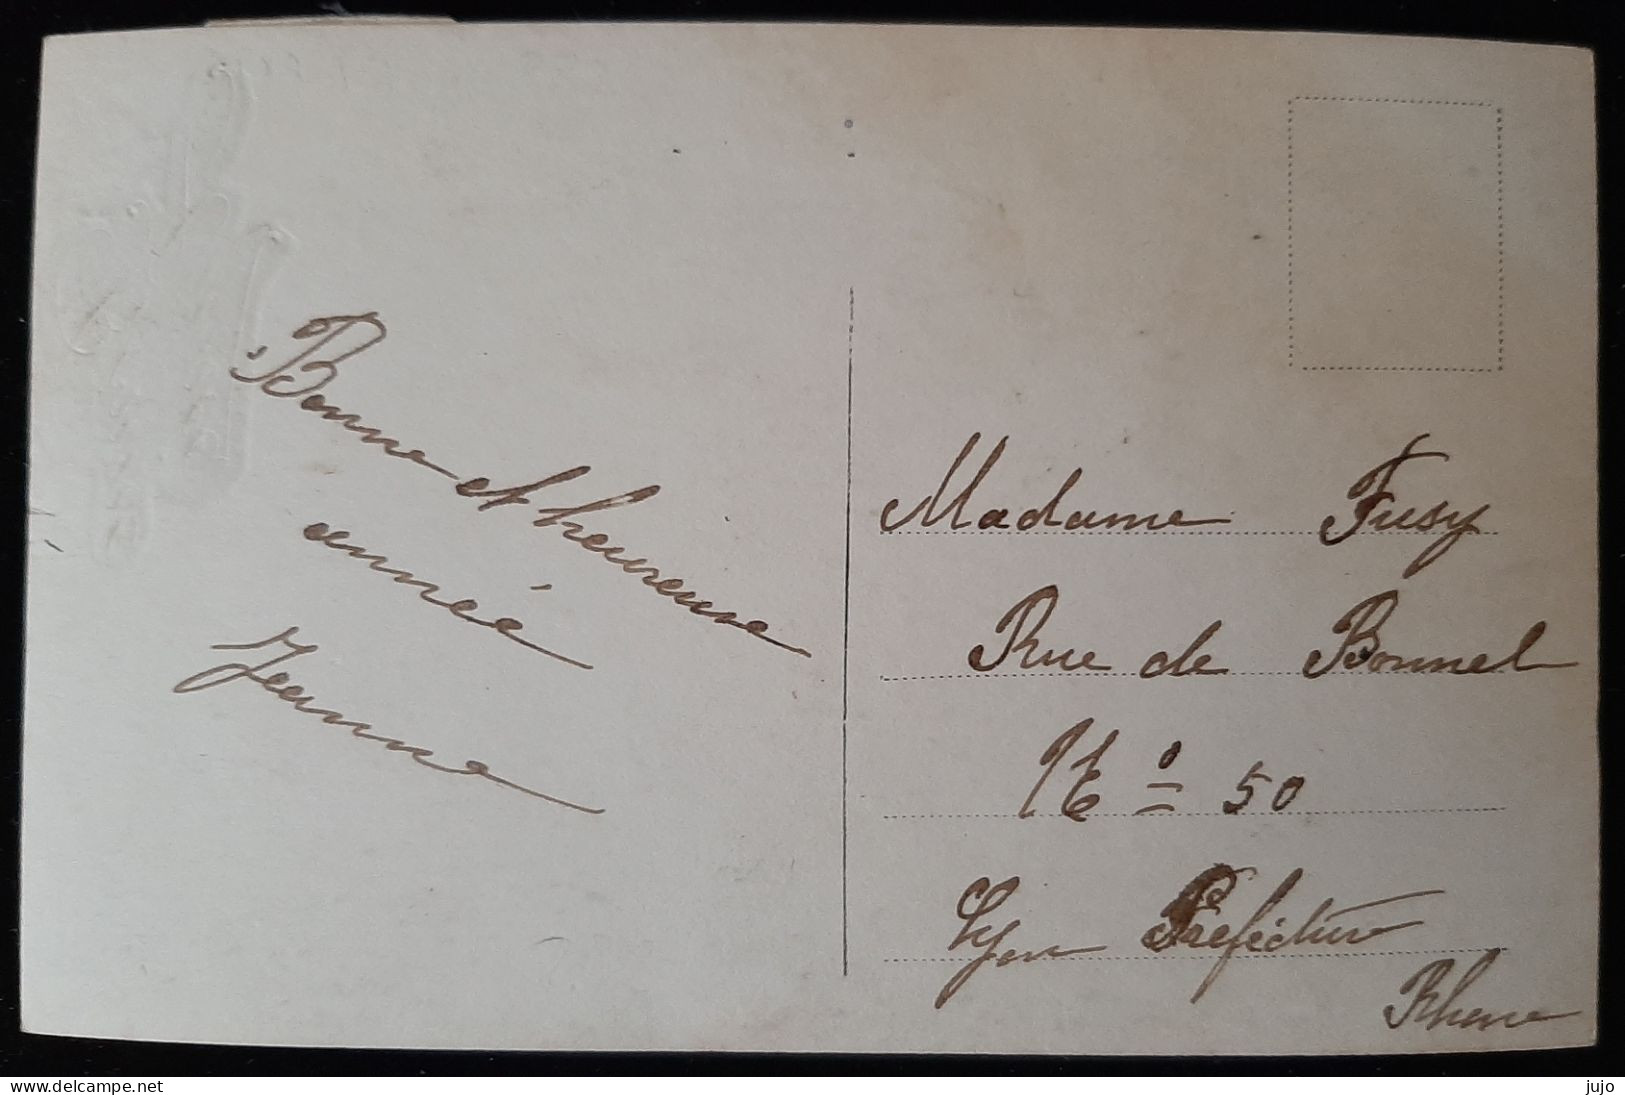 Bonne et heureuse
année
Jeanne
Madame Fusy
Rue de Bonnel
N° 50
Lyon Préfecture
Rhone
delcampe.net
jujo